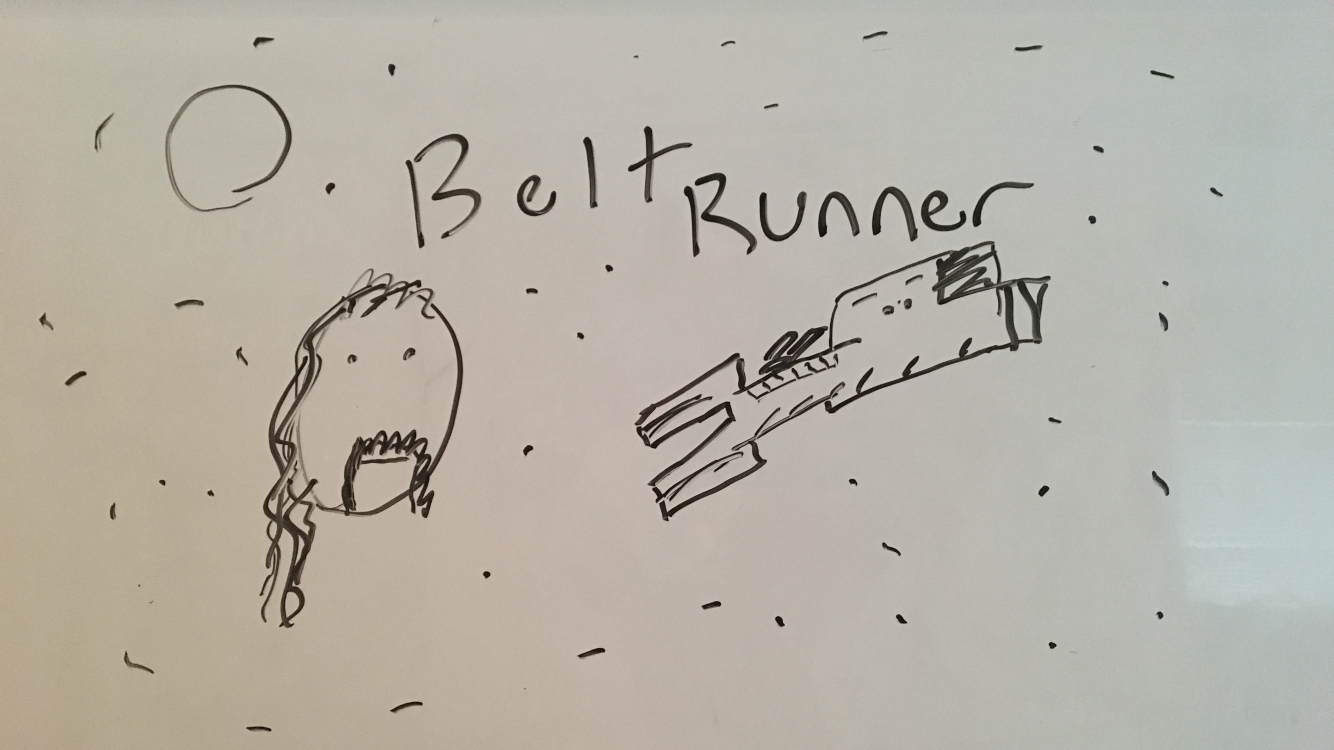 Belt Runner